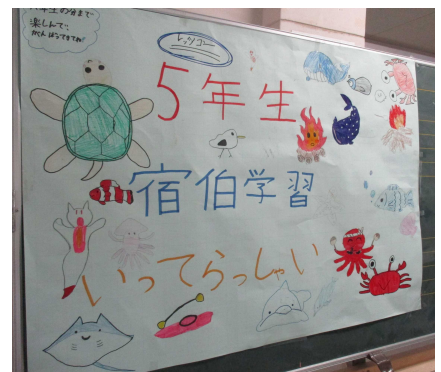 年生の分まで
楽しんで、
がんばってきてね!
レッツゴー
5年生
宿伯学習
いってらっしゃい